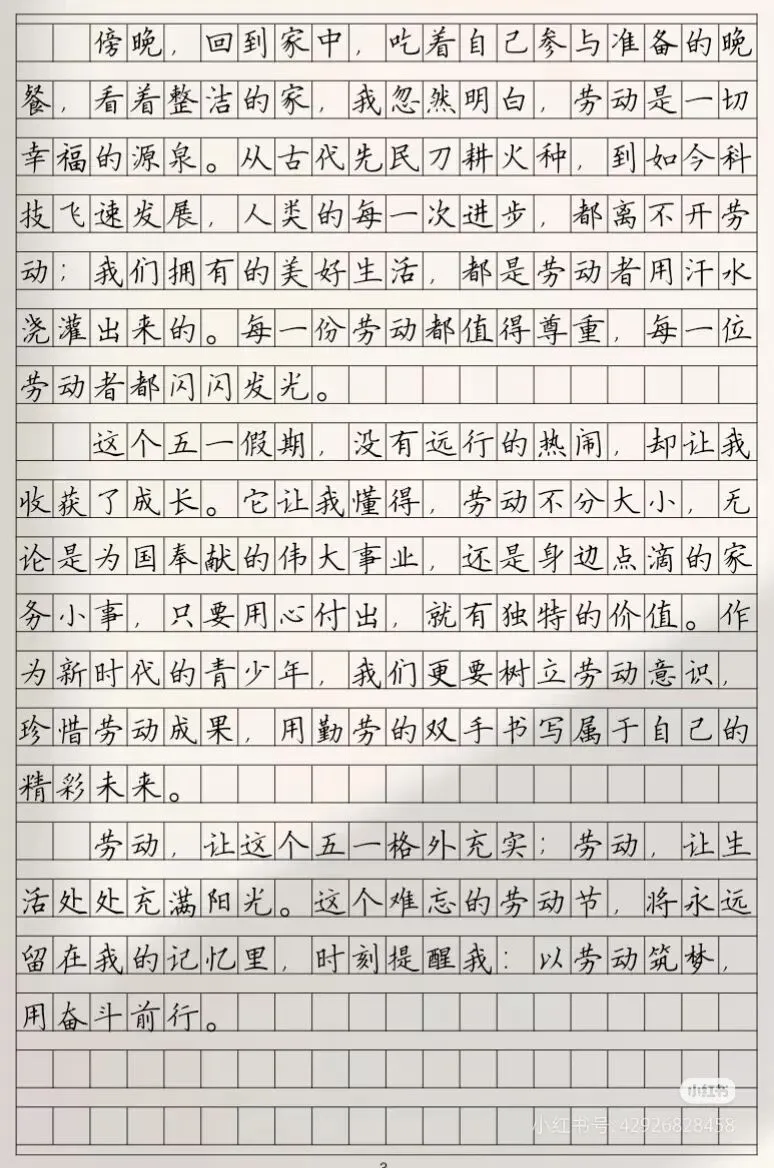 傍晚，回到家中，吃着自己参与准备的晚
餐，看着整洁的家，我忽然明白，劳动是一切
幸福的源泉。从古代先民刀耕火种，到如今科
技飞速发展，人类的每一次进步，都离不开劳
动；我们拥有的美好生活，都是劳动者用汗水
浇灌出来的。每一份劳动都值得尊重，每一位
劳动者都闪闪发光。
这个五一假期，没有远行的热闹，却让我
收获了成长。它让我懂得，劳动不分大小，无
论是为国奉献的伟大事业，还是身边点滴的家
务小事，只要用心付出，就有独特的价值。作
为新时代的青少年，我们更要树立劳动意识，
珍惜劳动成果，用勤劳的双手书写属于自己的
精彩未来。
劳动，让这个五一格外充实；劳动，让生
活处处充满阳光。这个难忘的劳动节，将永远
留在我的记忆里，时刻提醒我：以劳动筑梦，
用奋斗前行。
小红书
小红书号:42926828458
3